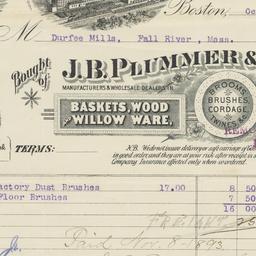 Boston, Oc
M Durfee Mills, Fall River, Mass.
Bought of J.B. PLUMMER &
MANUFACTURERS & WHOLESALE DEALERS IN
BASKETS, WOOD
AND WILLOW WARE.
BROOMS
BRUSHES,
CORDAGE,
TWINES &C.
TERMS:
N.B. We do not insure delivery or safe carriage of
in good order and they are at your risk after receipt is
Company. Insurance affected only when ordered.
actory Dust Brushes 17.00 8 50
Floor Brushes 7 50
16 00
Paid Nov. 8-1893